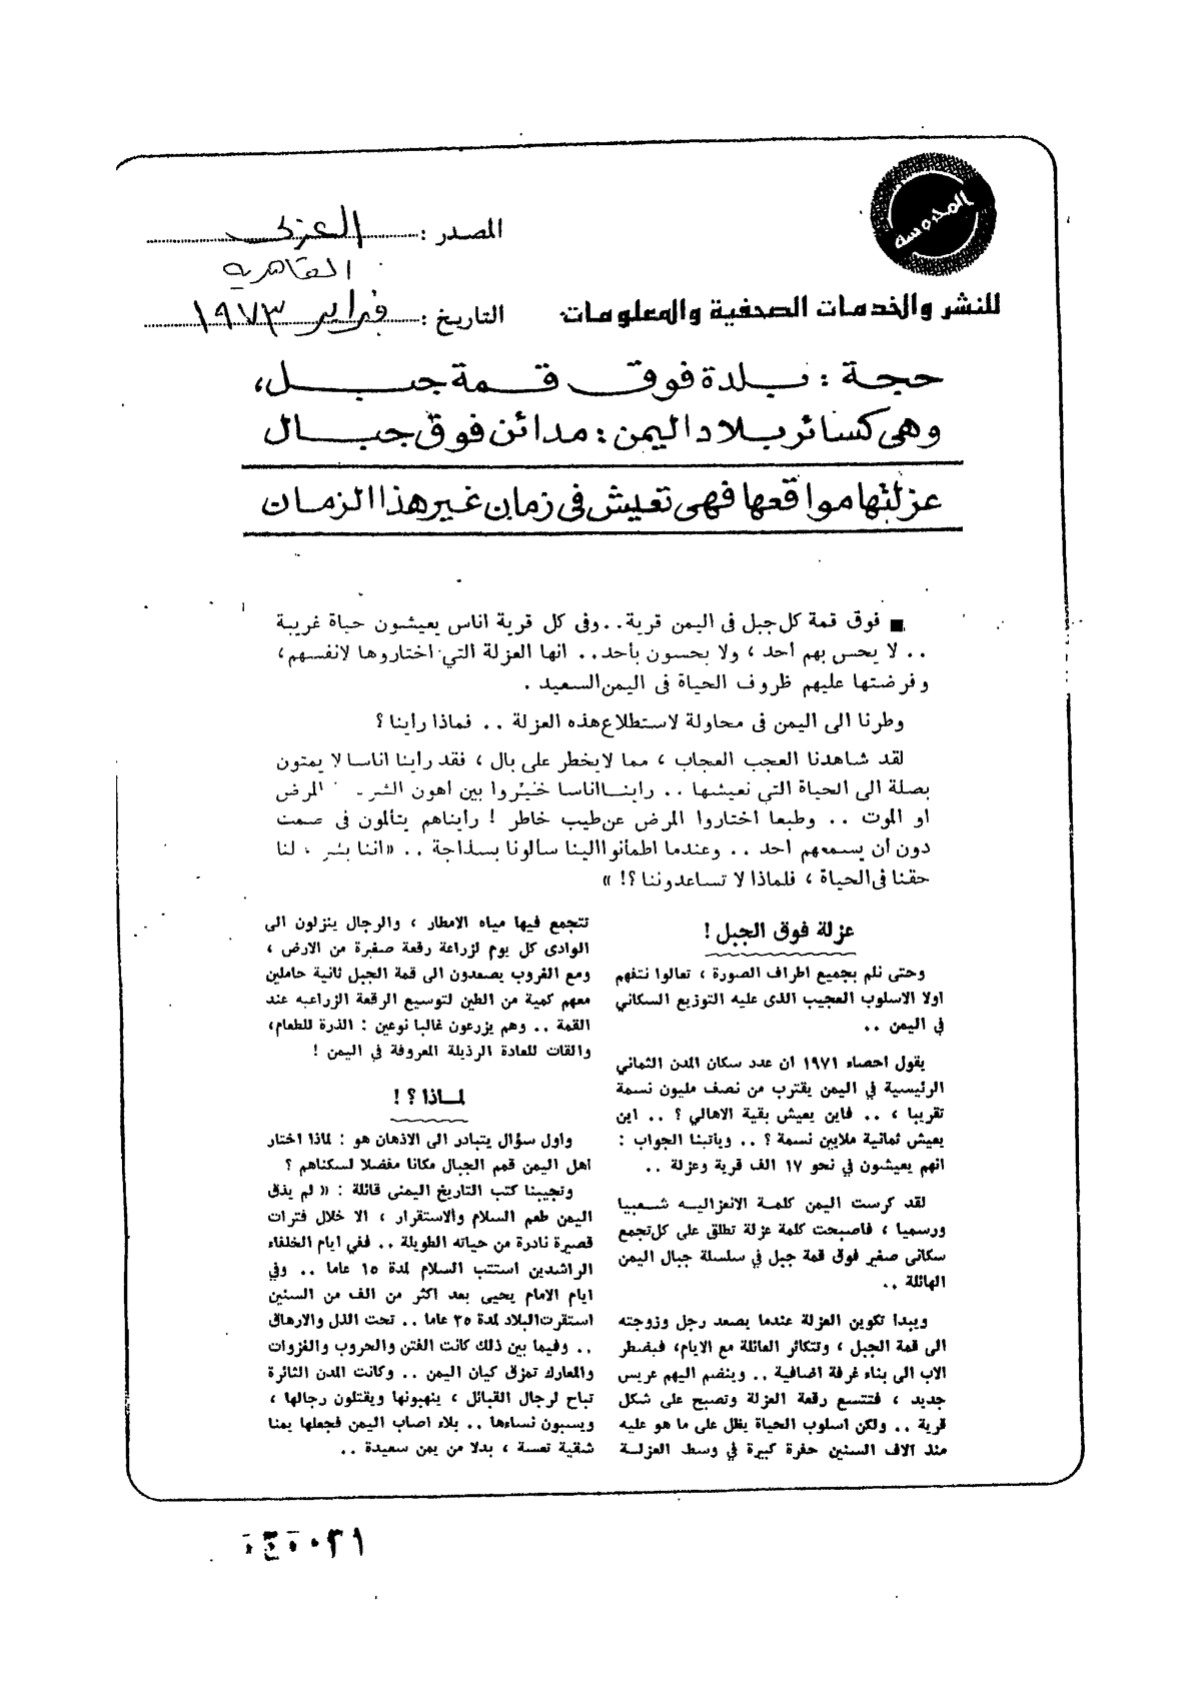 المحروسة
المصدر : العربى
القاهرية
للنشر والخدمات الصحفية والمعلومات
التاريخ : فبراير ١٩٧٣
حجة : بلدة فوق قمة جبل،
وهى كسائر بلاد اليمن : مدائن فوق جبال
عزلتها مواقعها فهى تعيش فى زمان غير هذا الزمان
■ فوق قمة كل جبل فى اليمن قرية.. وفى كل قرية اناس يعيشون حياة غريبة
.. لا يحس بهم أحد ، ولا يحسون بأحد.. انها العزلة التي اختاروها لانفسهم،
وفرضتها عليهم ظروف الحياة فى اليمن السعيد .
وطرنا الى اليمن فى محاولة لاستطلاع هذه العزلة .. فماذا راينا ؟
لقد شاهدنا العجب العجاب ، مما لا يخطر على بال ، فقد راينا اناسا لا يمتون
بصلة الى الحياة التي نعيشها .. راينا اناسا خيّروا بين اهون الشر المرض
او الموت .. وطبعا اختاروا المرض عن طيب خاطر ! رأيناهم يتألمون فى صمت
دون أن يسمعهم احد .. وعندما اطمأنوا الينا سألونا بسذاجة .. «اننا بشر ، لنا
حقنا فى الحياة ، فلماذا لا تساعدوننا ؟! »
عزلة فوق الجبل !
وحتى نلم بجميع اطراف الصورة ، تعالوا نتفهم
اولا الاسلوب العجيب الذى عليه التوزيع السكاني
في اليمن ..
يقول احصاء ١٩٧١ ان عدد سكان المدن الثماني
الرئيسية في اليمن يقترب من نصف مليون نسمة
تقريبا ، .. فاين يعيش بقية الاهالي ؟ .. اين
يعيش ثمانية ملايين نسمة ؟ .. ويأتينا الجواب :
انهم يعيشون في نحو ١٧ الف قرية وعزلة ..
لقد كرست اليمن كلمة الانعزاليه شعبيا
ورسميا ، فاصبحت كلمة عزلة تطلق على كل تجمع
سكانى صغير فوق قمة جبل في سلسلة جبال اليمن
الهائلة ..
ويبدا تكوين العزلة عندما يصعد رجل وزوجته
الى قمة الجبل ، وتتكاثر العائلة مع الايام، فيضطر
الاب الى بناء غرفة اضافية .. وينضم اليهم عريس
جديد ، فتتسع رقعة العزلة وتصبح على شكل
قرية .. ولكن اسلوب الحياة يظل على ما هو عليه
منذ الاف السنين حفرة كبيرة في وسط العزلة
تتجمع فيها مياه الامطار ، والرجال ينزلون الى
الوادى كل يوم لزراعة رقعة صغيرة من الارض ،
ومع الغروب يصعدون الى قمة الجبل ثانية حاملين
معهم كمية من الطين لتوسيع الرقعة الزراعيه عند
القمة .. وهم يزرعون غالبا نوعين : الذرة للطعام،
والقات للعادة الرذيلة المعروفة في اليمن !
لماذا ؟ !
واول سؤال يتبادر الى الاذهان هو : لماذا اختار
اهل اليمن قمم الجبال مكانا مفضلا لسكناهم ؟
وتجيبنا كتب التاريخ اليمنى قائلة : « لم يذق
اليمن طعم السلام والاستقرار ، الا خلال فترات
قصيرة نادرة من حياته الطويلة .. ففي ايام الخلفاء
الراشدين استتب السلام لمدة ١٥ عاما .. وفي
ايام الامام يحيى بعد اكثر من الف من السنين
استقرت البلاد لمدة ٢٥ عاما .. تحت الذل والارهاق
.. وفيما بين ذلك كانت الفتن والحروب والغزوات
والمعارك تمزق كيان اليمن .. وكانت المدن الثائرة
تباح لرجال القبائل ، ينهبونها ويقتلون رجالها ،
ويسبون نساءها .. بلاء اصاب اليمن فجعلها يمنا
شقية تعسة ، بدلا من يمن سعيدة ..